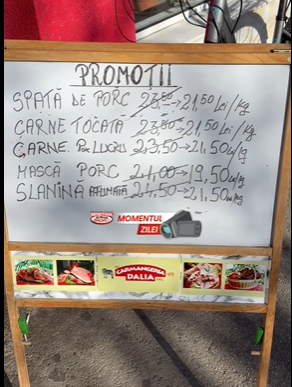 PROMOȚII
SPATĂ DE PORC 23,50→21,50 Lei/kg
CARNE TOCATĂ 23,50→21,50 Lei/kg
CARNE PT. LUCRU 23,50→21,50 Lei/kg
MASCĂ PORC 21,00→19,50 Lei/kg
SLANINA AFUMATĂ 24,50→21,50 Lei/kg
MOMENTUL
ZILEI
CARMANGERIA
DALIA